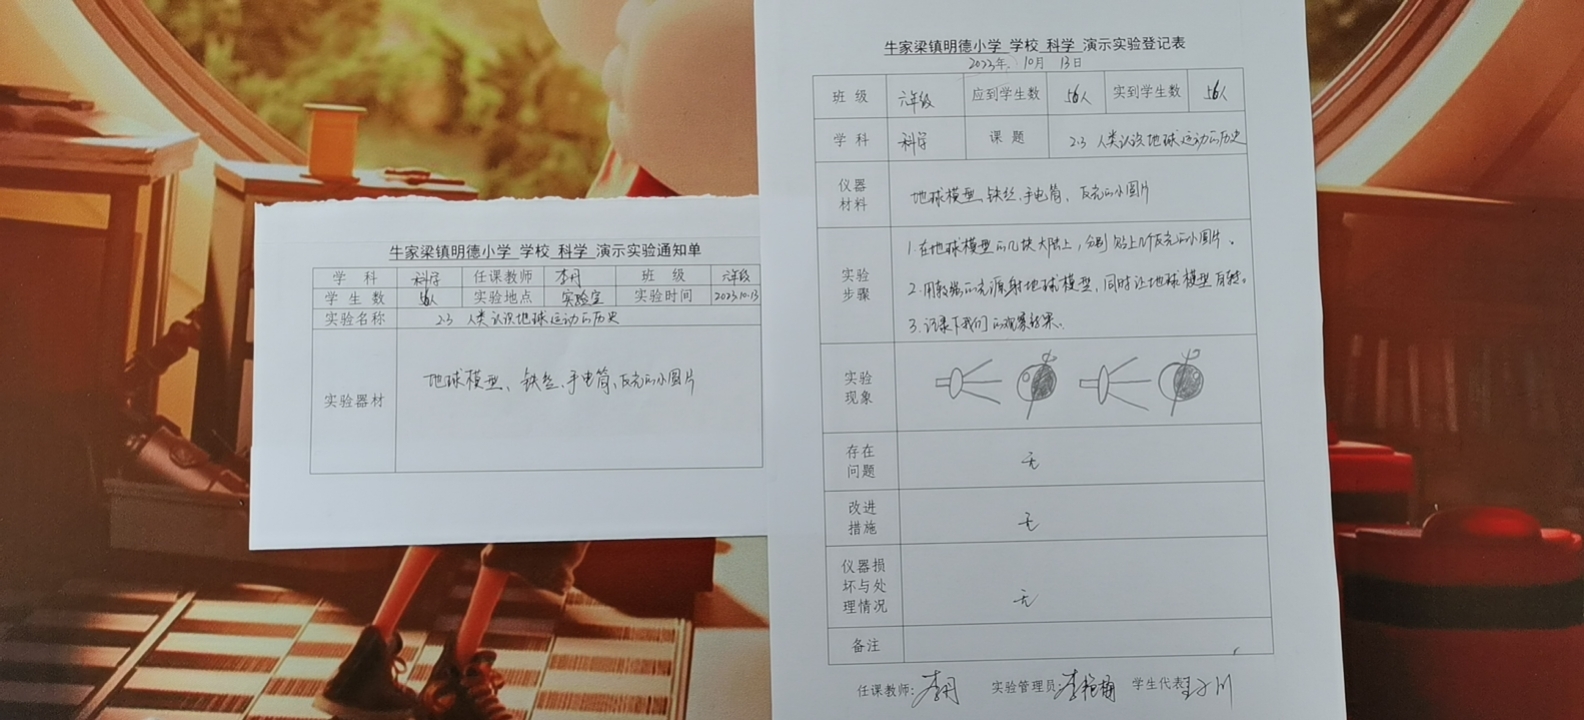 牛家梁镇明德小学 学校 科学 演示实验通知单
学科 科学 任课教师 李丹 班级 六年级
学生数 56人 实验地点 实验室 实验时间 2023.10.13
实验名称 2.3 人类认识地球运动的历史
实验器材 地球模型、铁丝、手电筒、反光的小圆片
牛家梁镇明德小学 学校 科学 演示实验登记表
2023年 10月 13日
班级 六年级 应到学生数 56人 实到学生数 56人
学科 科学 课题 2.3 人类认识地球运动的历史
仪器材料 地球模型、铁丝、手电筒、反光的小圆片
实验步骤
1.在地球模型的几块大陆上,分别贴上几个反光的小圆片。
2.用较强的光源射地球模型,同时让地球模型自转。
3.记录下我们的观察结果。
实验现象
存在问题 无
改进措施 无
仪器损坏与处理情况 无
备注
任课教师:李丹 实验管理员: 学生代表